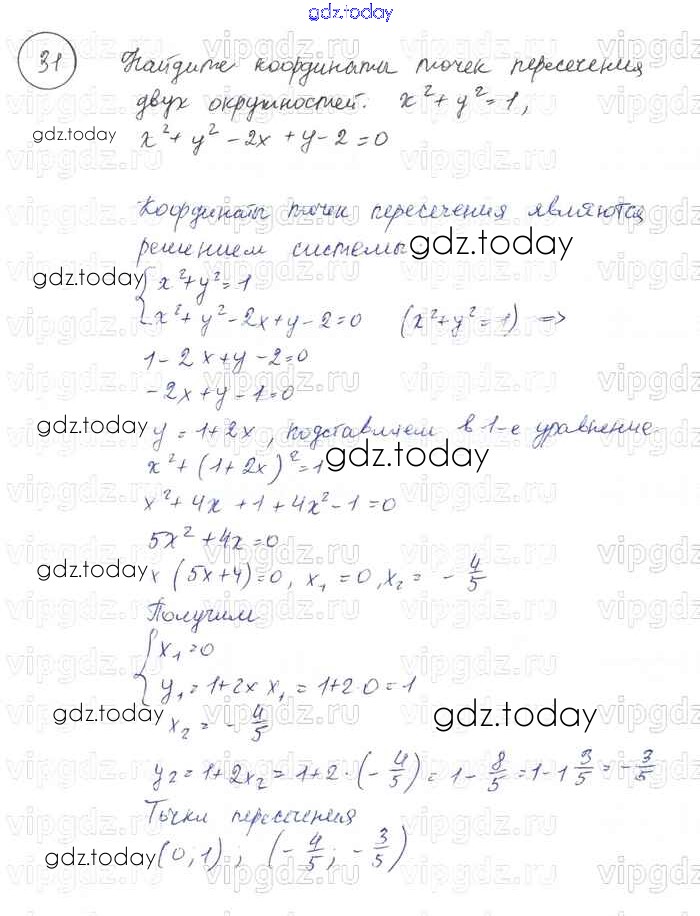 gdz.today
31 Найдите координаты точек пересечения
двух окружностей. x²+y²=1,
gdz.today
x²+y²-2x+y-2=0
Координаты точек пересечения являются
решением системы gdz.today
gdz.today { x²+y²=1
x²+y²-2x+y-2=0 (x²+y²=1) =>
1-2x+y-2=0
-2x+y-1=0
gdz.today y=1+2x, подставляем в 1-е уравнение
x²+(1+2x)²=1 gdz.today
x²+4x+1+4x²-1=0
5x²+4x=0
gdz.today x(5x+4)=0, x₁=0, x₂=-4/5
Получим
{ x₁=0
y₁=1+2x x₁=1+2·0=1
gdz.today x₂=-4/5 gdz.today
y₂=1+2x₂=1+2·(-4/5)=1-8/5=1-1 3/5=-3/5
Точки пересечения
gdz.today (0,1); (-4/5; -3/5)
vipgdz.ru